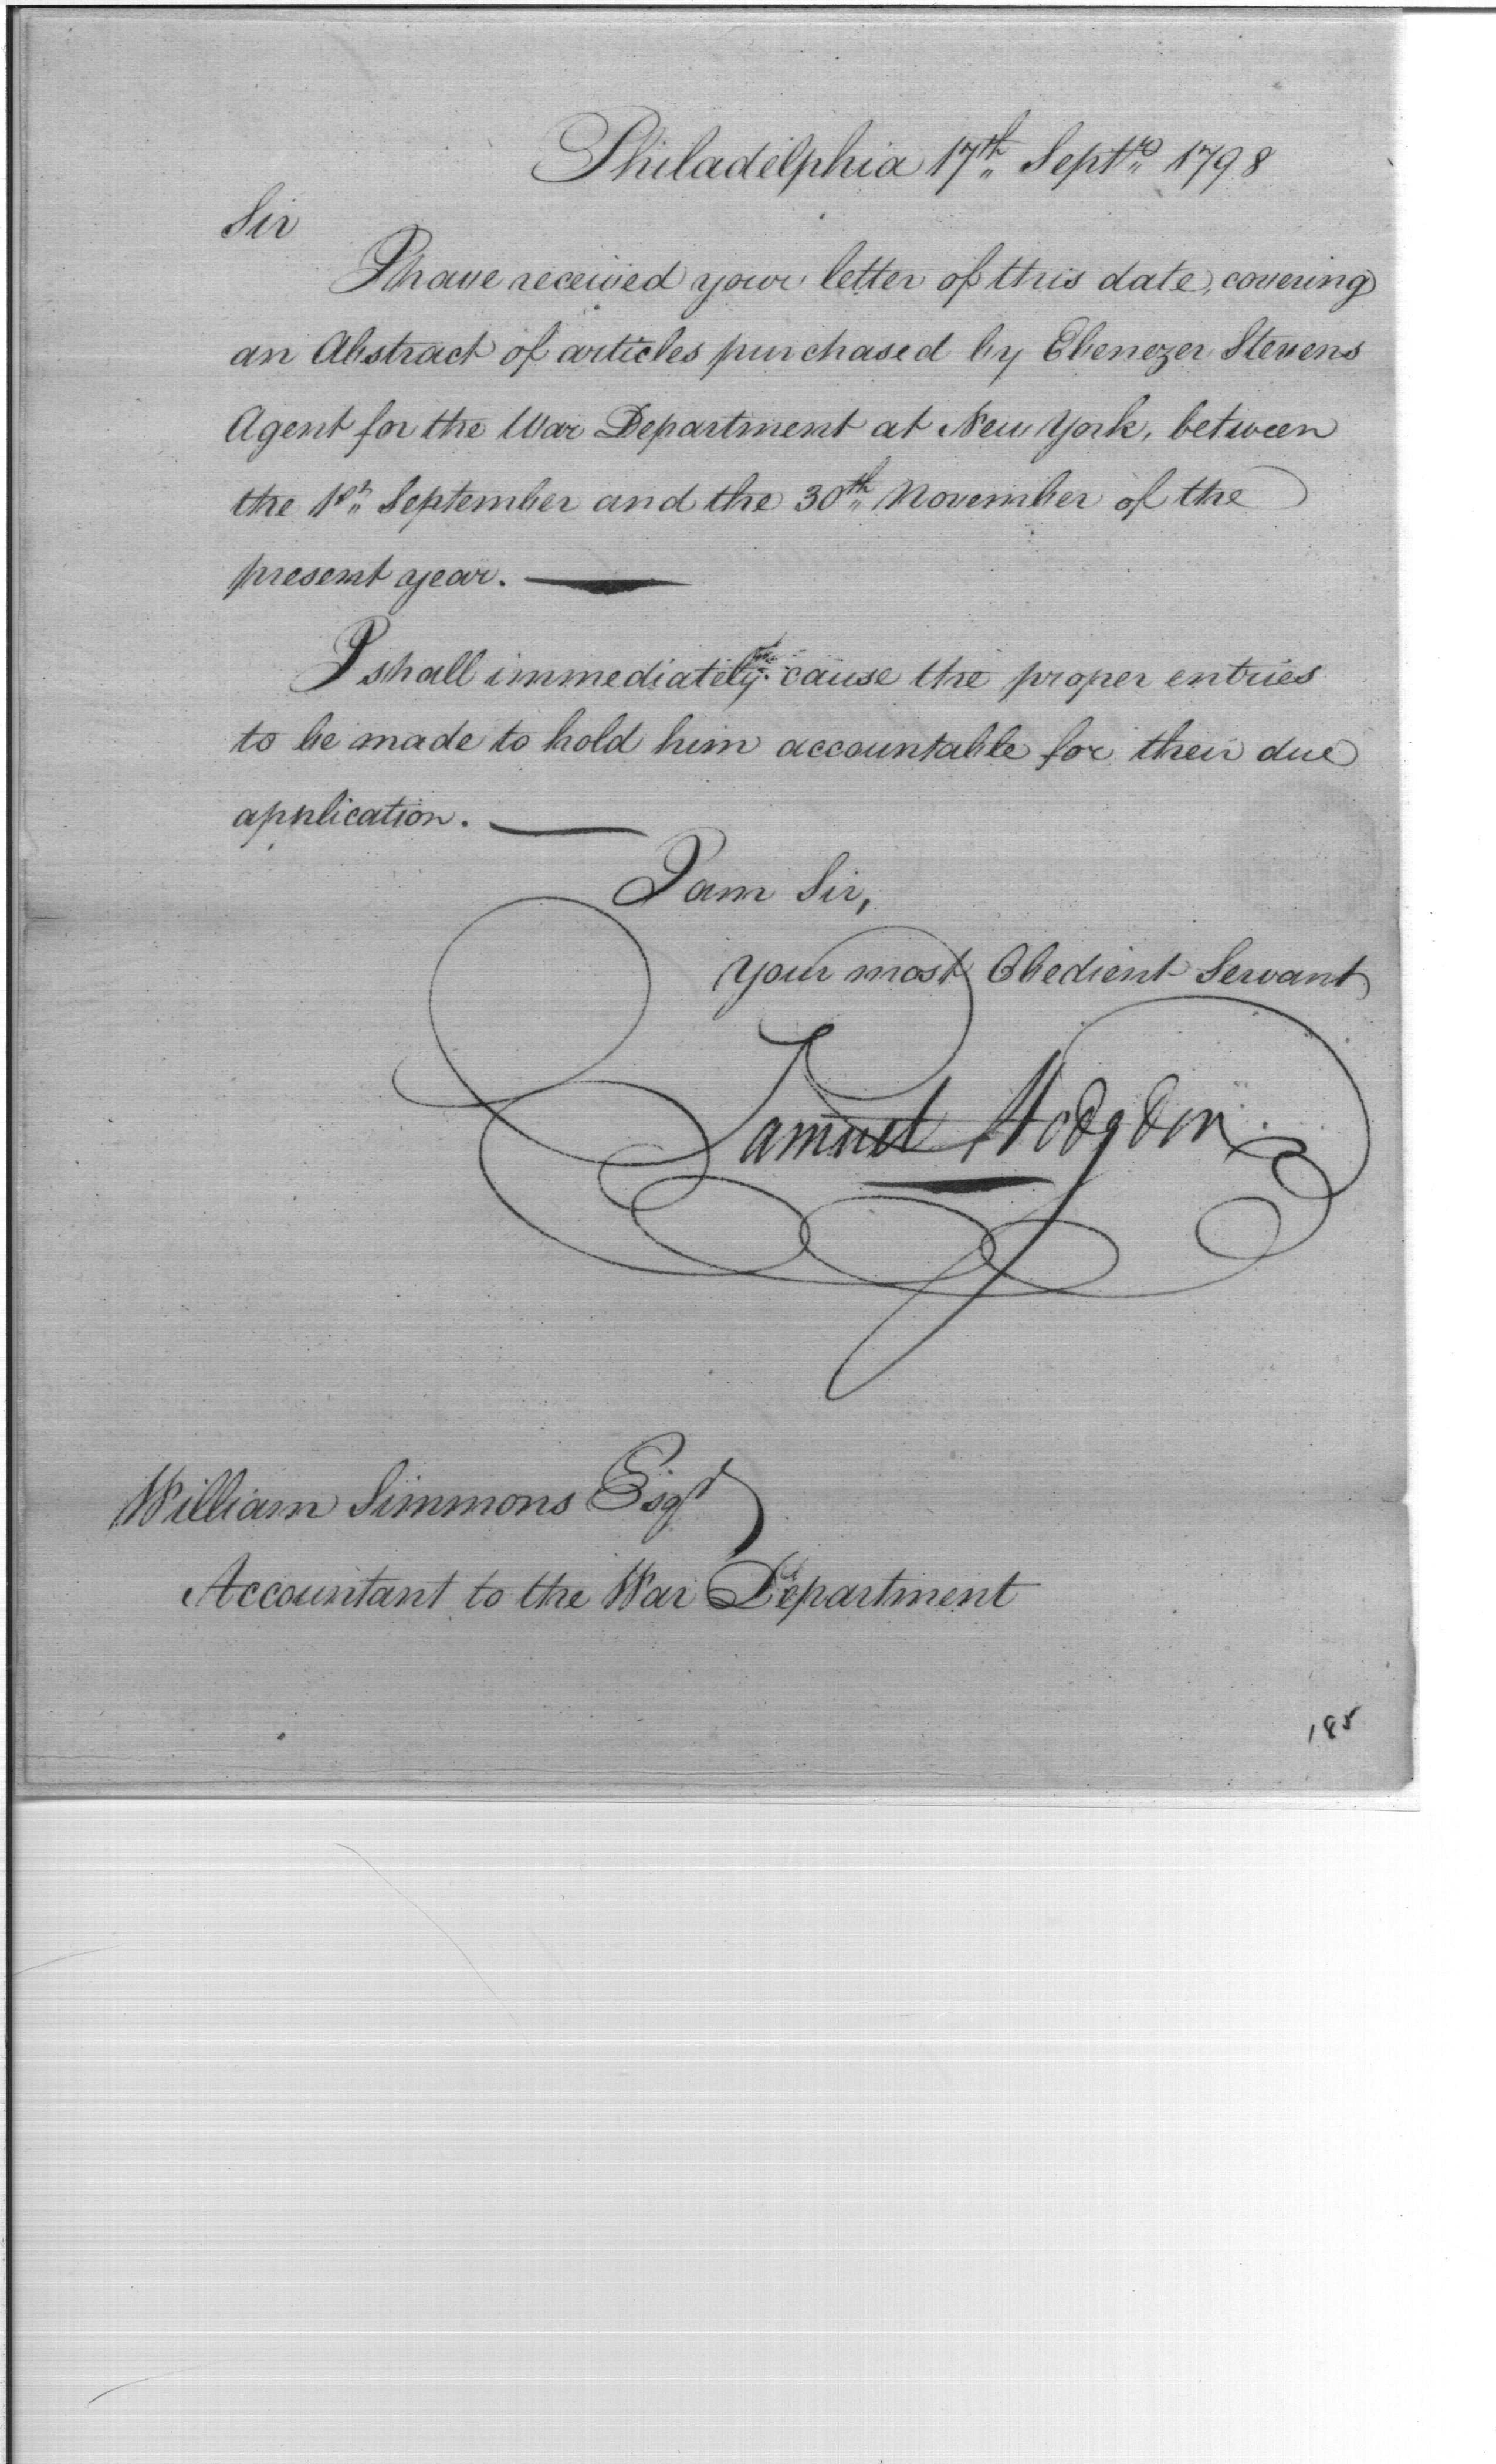 Philadelphia 17th Septr 1798
Sir
I have received your letter of this date, covering
an Abstract of articles purchased by Ebenezer Stevens
Agent for the War Department at New York, between
the 1st September and the 30th November of the
present year.
I shall immediately cause the proper entries
to be made to hold him accountable for their due
application.
I am Sir,
Your most Obedient Servant
Samuel Hodgdon
William Simmons Esqr
Accountant to the War Department
185